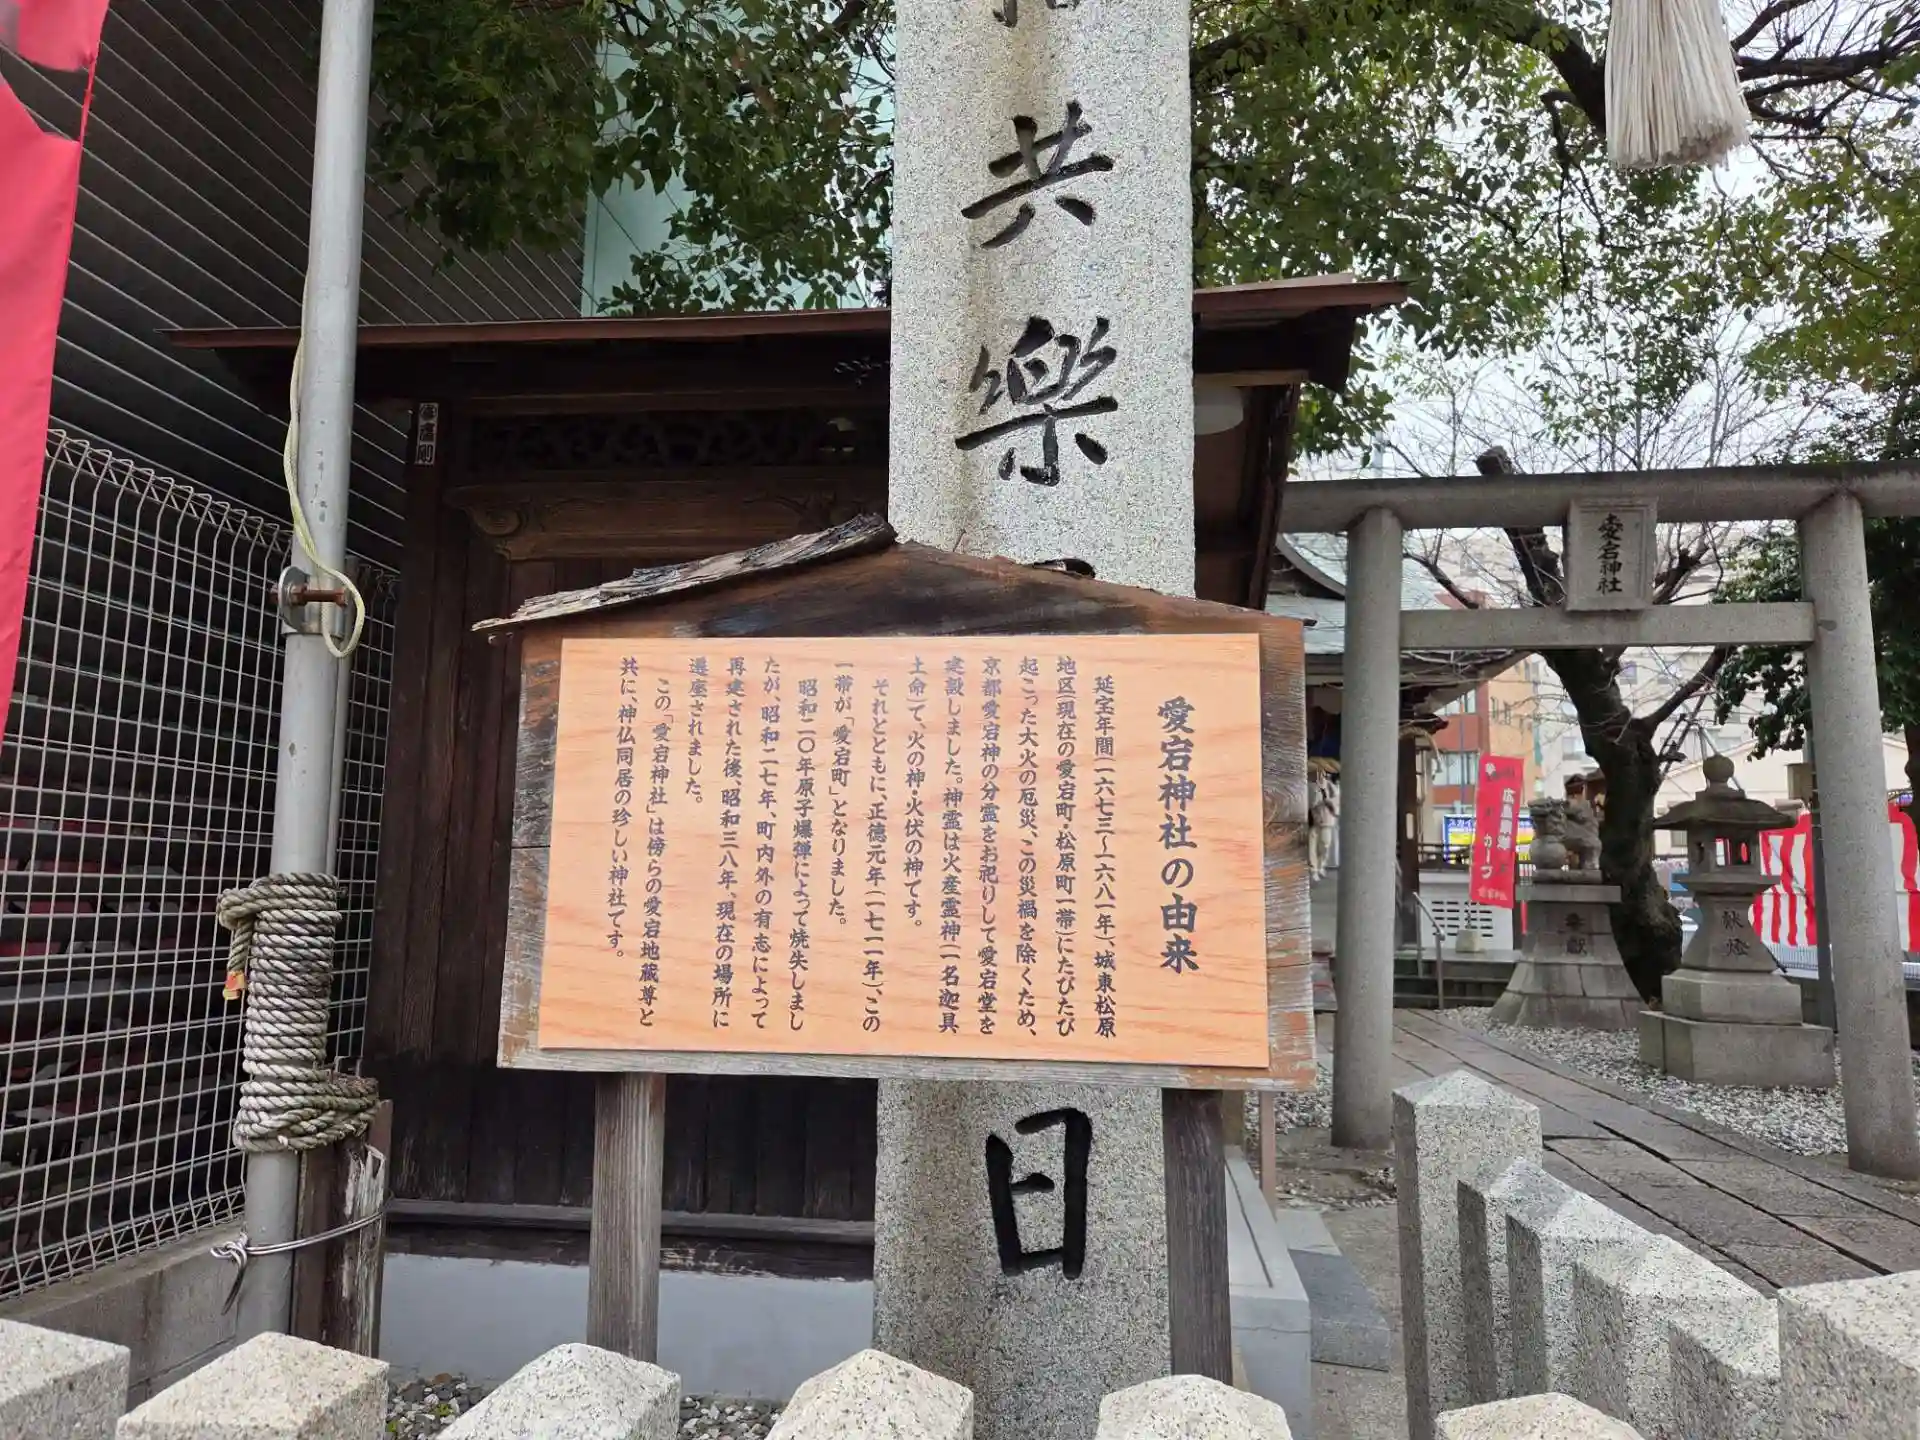 共樂
日
愛宕神社の由来
延宝年間(一六七三～一六八一年)、城東松原
地区(現在の愛宕町・松原町一帯)にたびたび
起こった大火の厄災、この災禍を除くため、
京都愛宕神の分霊をお祀りして愛宕堂を
建設しました。神霊は火産霊神(一名迦具
土命)で、火の神・火伏の神です。
それとともに、正徳元年(一七一一年)、この
一帯が「愛宕町」となりました。
昭和二〇年原子爆弾によって焼失しまし
たが、昭和二七年、町内外の有志によって
再建された後、昭和三八年、現在の場所に
遷座されました。
この「愛宕神社」は傍らの愛宕地蔵尊と
共に、神仏同居の珍しい神社です。
愛宕神社
カープ
奉献
献燈